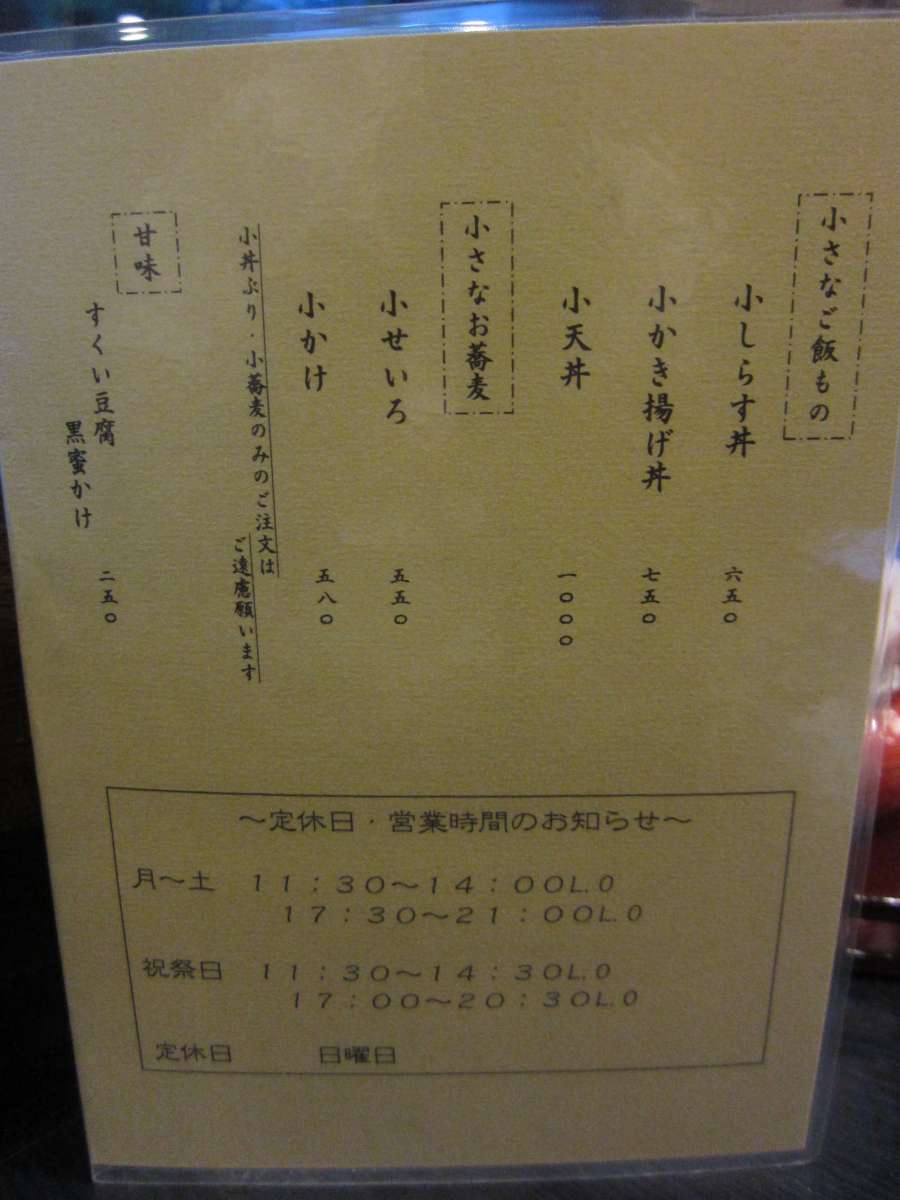 小さなご飯もの
小しらす丼 六五〇
小かき揚げ丼 七五〇
小天丼 一〇〇〇
小さなお蕎麦
小せいろ 五五〇
小かけ 五八〇
小丼ぶり・小蕎麦のみのご注文は
ご遠慮願います
甘味
すくい豆腐
黒蜜かけ 二五〇
～定休日・営業時間のお知らせ～
月～土 11:30～14:00L.O
17:30～21:00L.O
祝祭日 11:30～14:30L.O
17:00～20:30L.O
定休日 日曜日